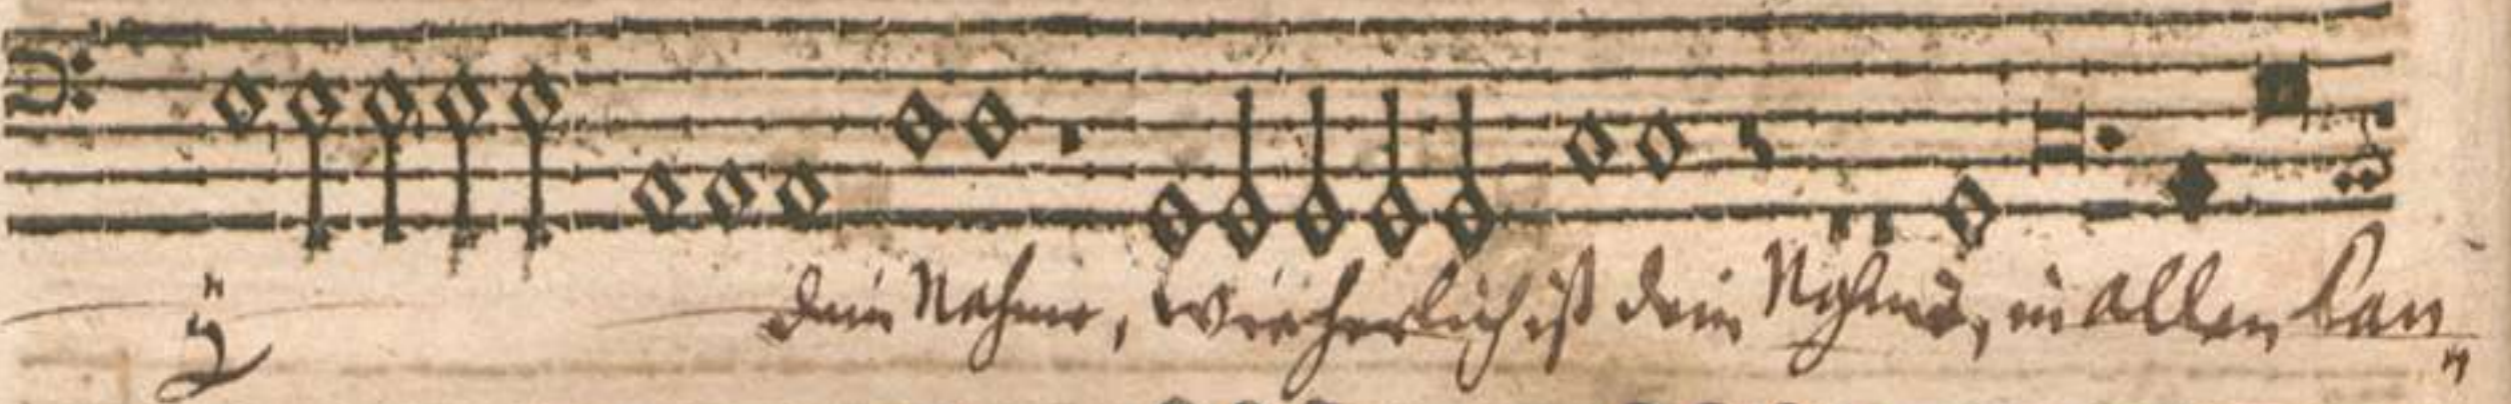 ij dein Nahme, Wie herlich ist dein Nahme, in allen Lan